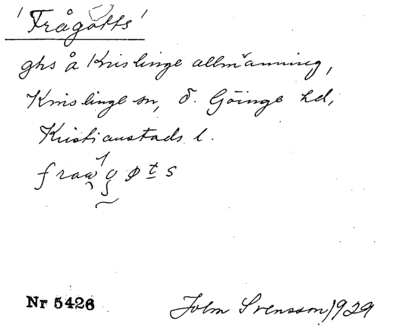 'Frågotts'
ghs å Knislinge allmänning,
Knislinge sn, Ö. Göinge hd,
Kristianstads l.
Nr 5426
John Svensson 1929